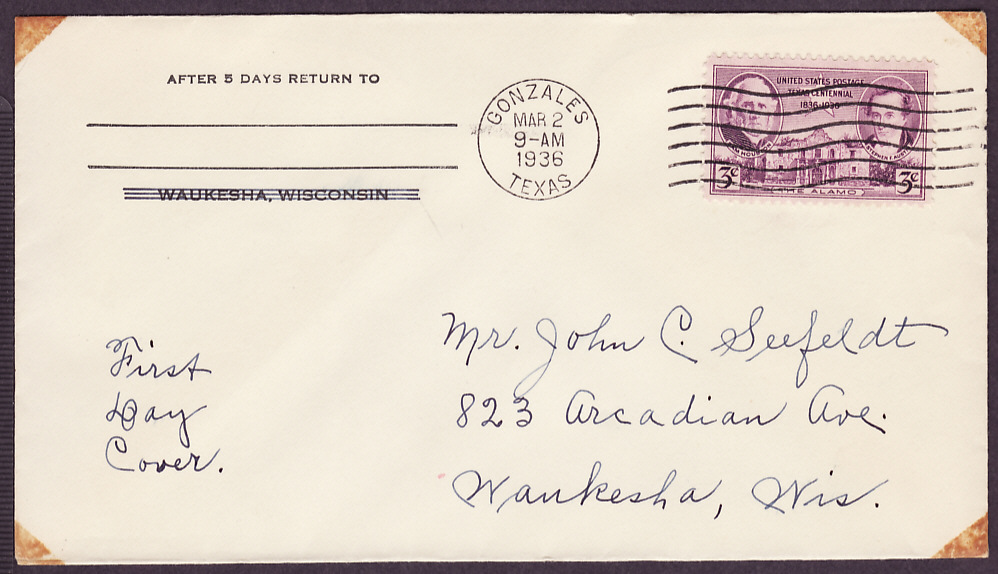 AFTER 5 DAYS RETURN TO
WAUKESHA, WISCONSIN
GONZALES
MAR 2
9-AM
1936
TEXAS
UNITED STATES POSTAGE
TEXAS CENTENNIAL
1836-1936
SAM HOUSTON
STEPHEN F. AUSTIN
3¢ 3¢
THE ALAMO
First
Day
Cover.
Mr. John C. Seefeldt
823 Arcadian Ave.
Waukesha, Wis.